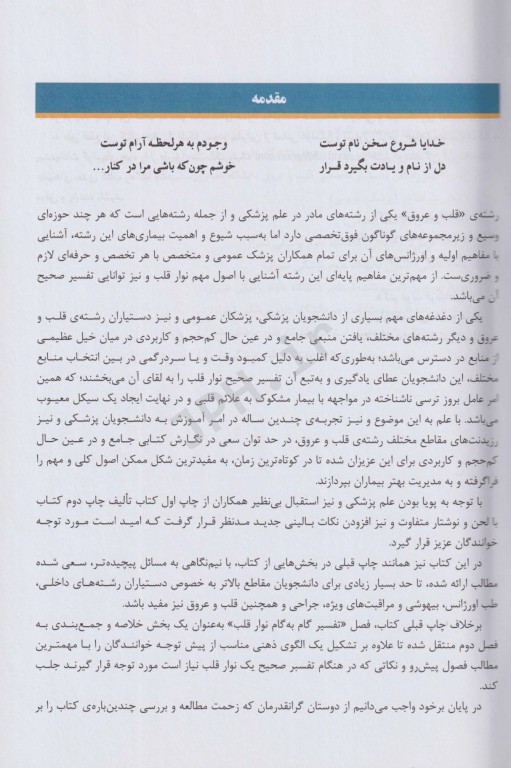 مقدمه
خدایا شروع سخن نام توست
وجودم به هرلحظه آرام توست
دل از نام و یادت بگیرد قرار
خوشم چون‌که باشی مرا در کنار...
رشته‌ی «قلب و عروق» یکی از رشته‌های مادر در علم پزشکی و از جمله رشته‌هایی است که هر چند حوزه‌ای
وسیع و زیرمجموعه‌های گوناگون فوق‌تخصصی دارد اما به‌سبب شیوع و اهمیت بیماری‌های این رشته، آشنایی
با مفاهیم اولیه و اورژانس‌های آن برای تمام همکاران پزشک عمومی و متخصص با هر تخصص و حرفه‌ای لازم
و ضروری‌ست. از مهم‌ترین مفاهیم پایه‌ای این رشته آشنایی با اصول مهم نوار قلب و نیز توانایی تفسیر صحیح
آن می‌باشد.
یکی از دغدغه‌های مهم بسیاری از دانشجویان پزشکی، پزشکان عمومی و نیز دستیاران رشته‌ی قلب و
عروق و دیگر رشته‌های مختلف، یافتن منبعی جامع و در عین حال کم‌حجم و کاربردی در میان خیل عظیمی
از منابع در دسترس می‌باشد؛ به‌طوری‌که اغلب به دلیل کمبود وقت و یا سردرگمی در بین انتخاب منابع
مختلف، این دانشجویان عطای یادگیری و به‌تبع آن تفسیر صحیح نوار قلب را به لقای آن می‌بخشند؛ که همین
امر عامل بروز ترسی ناشناخته در مواجهه با بیمار مشکوک به علائم قلبی و در نهایت ایجاد یک سیکل معیوب
می‌باشد. با علم به این موضوع و نیز تجربه‌ی چندین ساله در امر آموزش به دانشجویان پزشکی و نیز
رزیدنت‌های مقاطع مختلف رشته‌ی قلب و عروق، در حد توان سعی در نگارش کتابی جامع و در عین حال
کم‌حجم و کاربردی برای این عزیزان شده تا در کوتاه‌ترین زمان، به مفیدترین شکل ممکن اصول کلی و مهم را
فراگرفته و به مدیریت بهتر بیماران بپردازند.
با توجه به پویا بودن علم پزشکی و نیز استقبال بی‌نظیر همکاران از چاپ اول کتاب تألیف چاپ دوم کتاب
با لحن و نوشتار متفاوت و نیز افزودن نکات بالینی جدید مدنظر قرار گرفت که امید است مورد توجه
خوانندگان عزیز قرار گیرد.
در این کتاب نیز همانند چاپ قبلی در بخش‌هایی از کتاب، با نیم‌نگاهی به مسائل پیچیده‌تر، سعی شده
مطالب ارائه شده، تا حد بسیار زیادی برای دانشجویان مقاطع بالاتر به خصوص دستیاران رشته‌های داخلی،
طب اورژانس، بیهوشی و مراقبت‌های ویژه، جراحی و همچنین قلب و عروق نیز مفید باشد.
برخلاف چاپ قبلی کتاب، فصل «تفسیر گام به‌گام نوار قلب» به‌عنوان یک بخش خلاصه و جمع‌بندی به
فصل دوم منتقل شده تا علاوه بر تشکیل یک الگوی ذهنی مناسب از پیش توجه خوانندگان را با مهمترین
مطالب فصول پیش‌رو و نکاتی که در هنگام تفسیر صحیح یک نوار قلب نیاز است مورد توجه قرار گیرند جلب
کند.
در پایان برخود واجب می‌دانیم از دوستان گرانقدرمان که زحمت مطالعه و بررسی چندین‌باره‌ی کتاب را بر